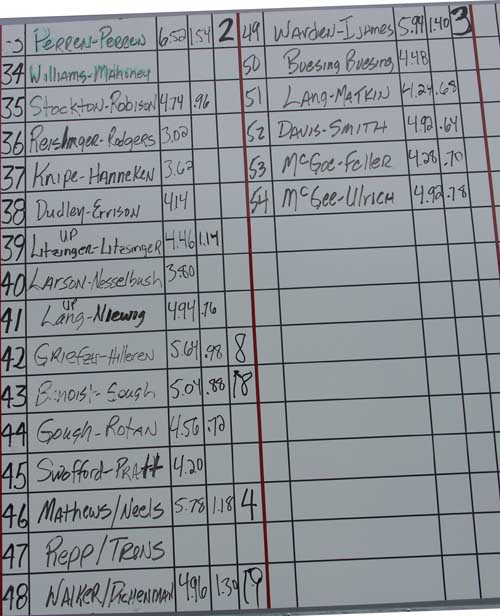 PERREN-PERREN 6.52 1.54 2
34 Williams-Mahoney
35 Stockton-Robison 4.74 .96
36 Reishnger-Rodgers 3.02
37 Knipe-Hanneken 3.62
38 Dudley-Errison 4.14
UP
39 Litzinger-Litzsinger 4.46 1.14
40 Larson-Nesselbush 3.80
UP
41 Lang-Niewig 4.94 .76
42 Griefzu-Hilleren 5.64 .98 8
43 Benoist-Gough 5.04 .88
44 Gough-Rotan 4.56 .72
45 Swofford-Pratt 4.20
46 Mathews/Neels 5.78 1.18 4
47 Repp/Trons
48 WALKER/ 4.96 1.30
49 WARDEN-IJAMES 5.94 1.40 3
50 Buesing Buesing 4.48
51 LANG-MATKIN 4.24 .68
52 DAVIS-SMITH 4.92 .64
53 McGee-Feller 4.28 .70
54 McGee-Ulrich 4.92 .78